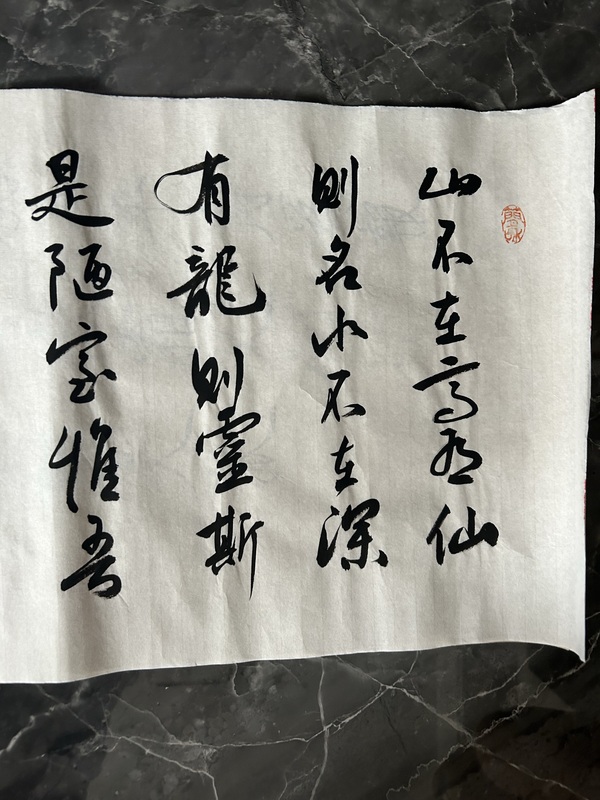 山不在高有仙
則名水不在深
有龍則靈斯
是陋室惟吾